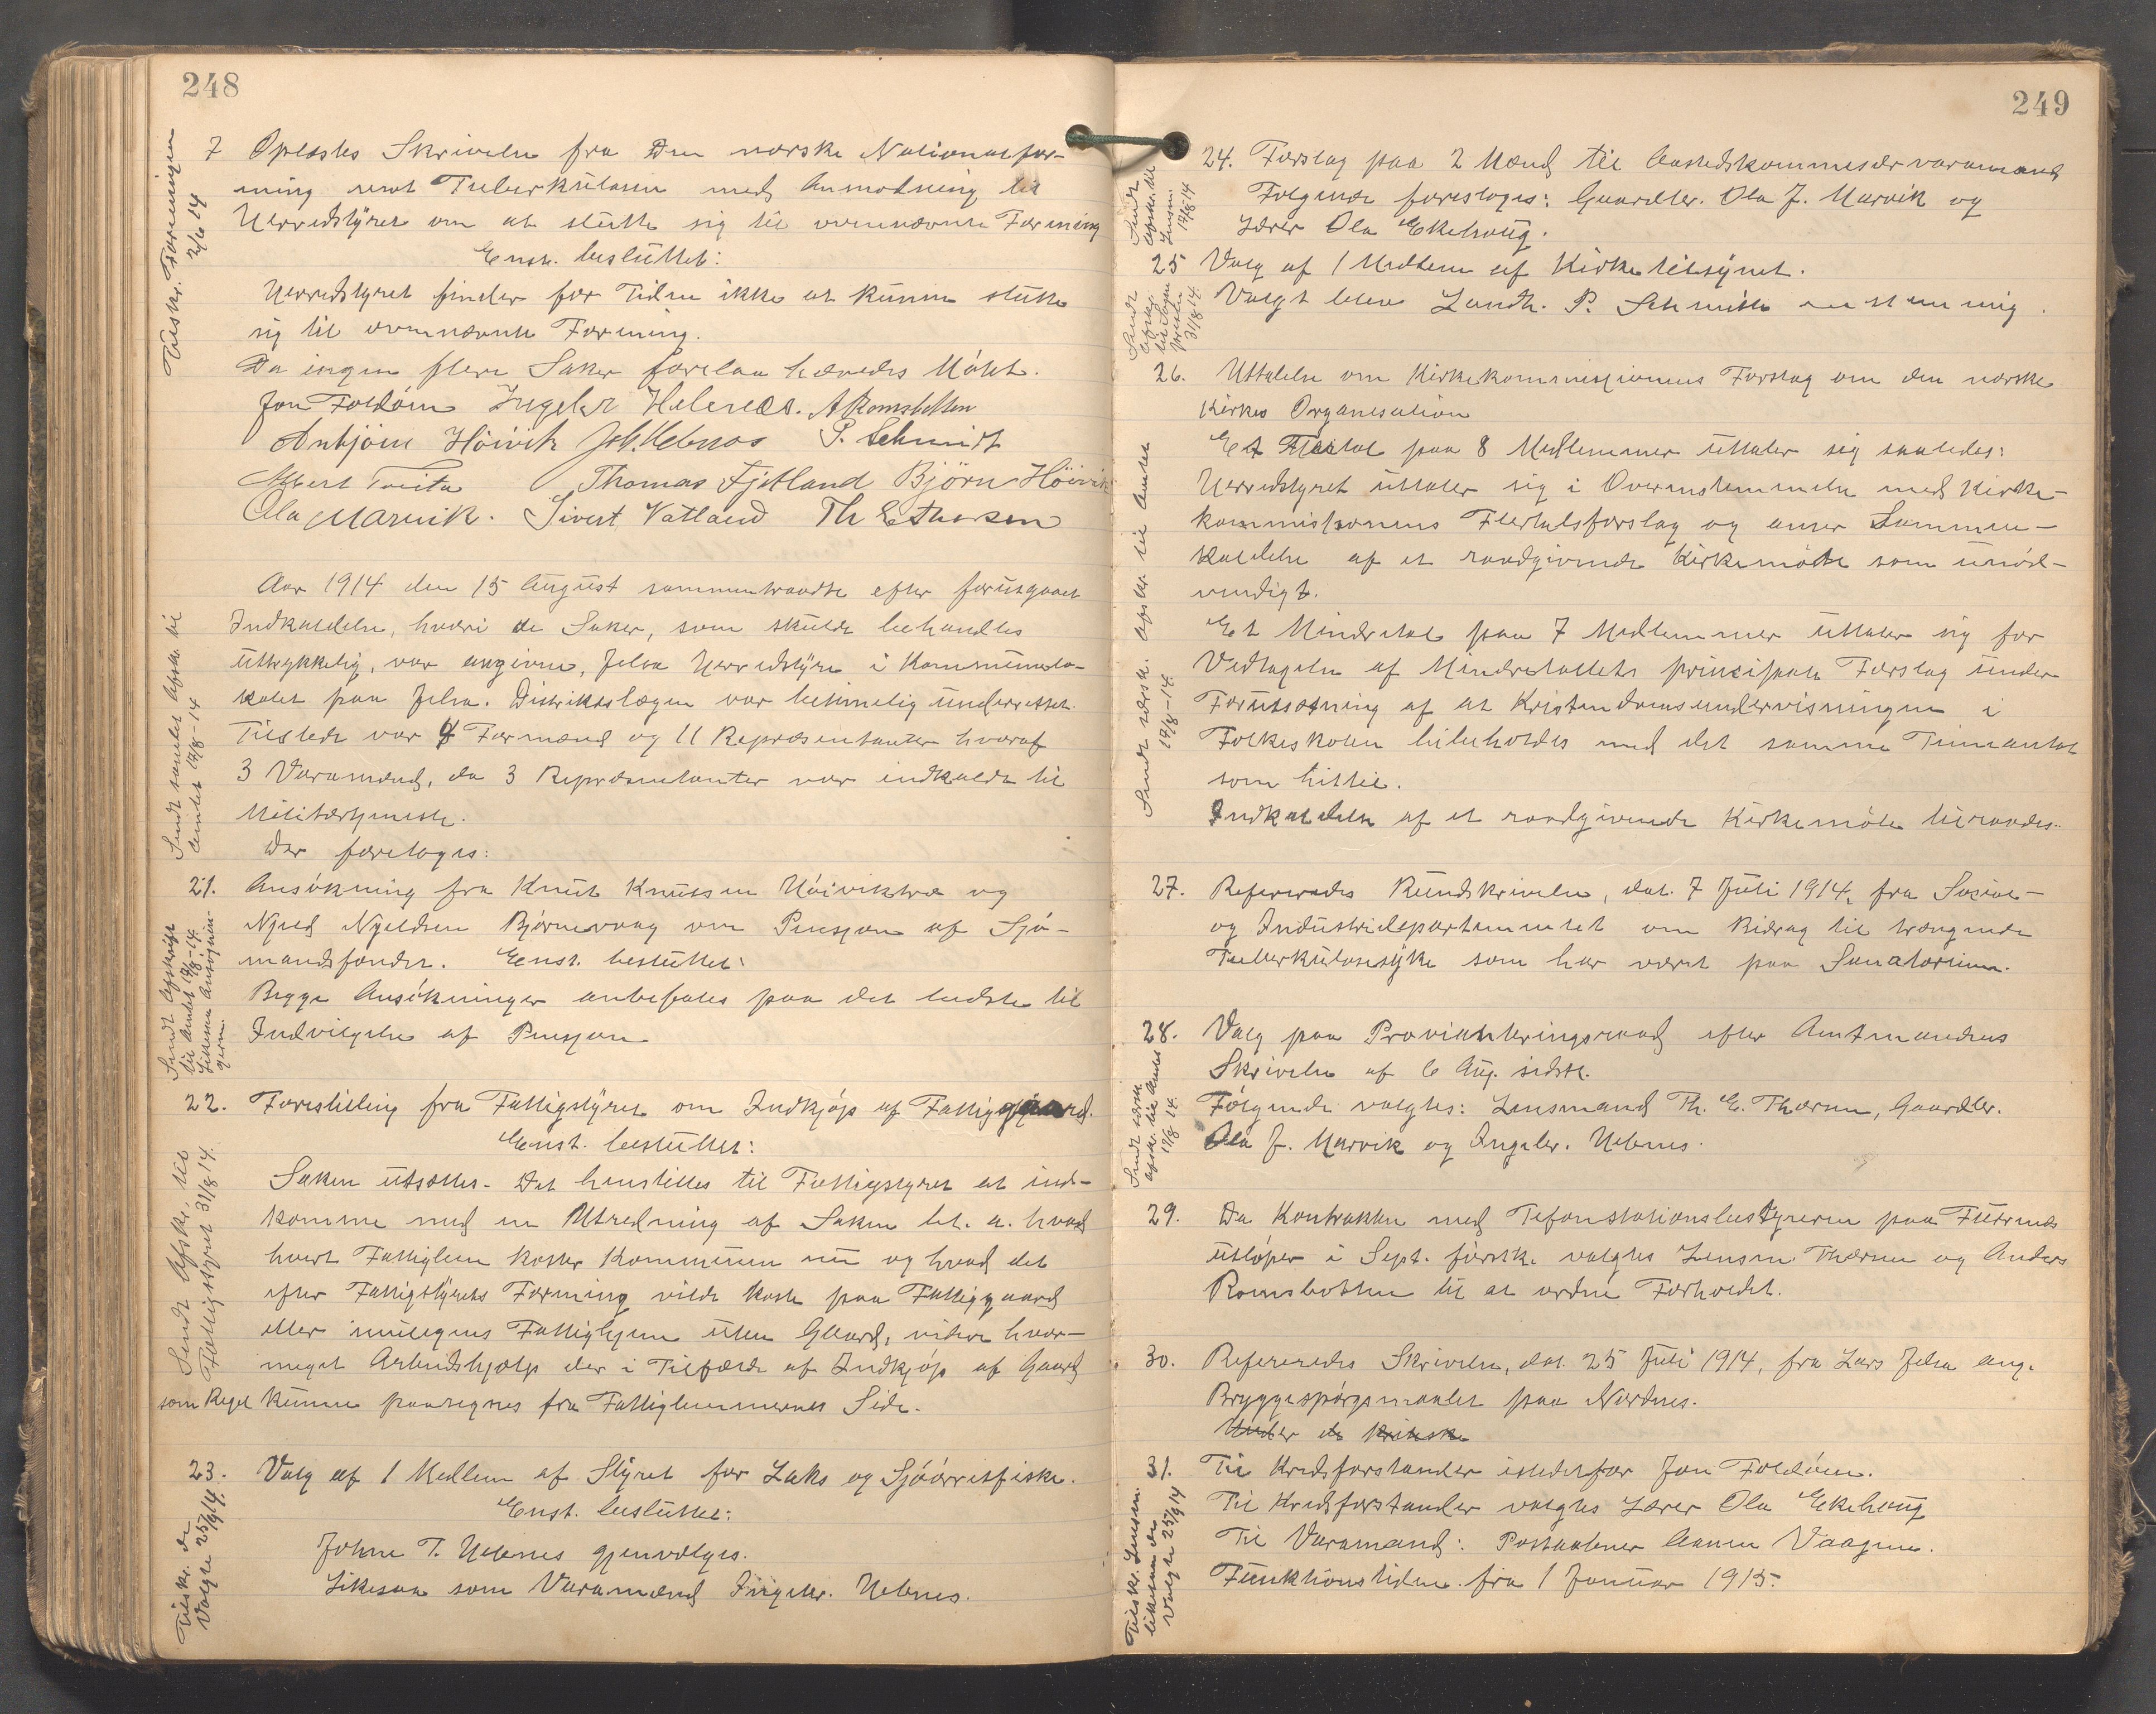 248
Tilskr. Foreningen
2/6 14
7 Oplæstes Skrivelse fra Den norske Nationalfor-
ening mot Tuberkulosen med Anmodning til
Herredstyret om at slutte sig til ovennævnte Forening
Enst. besluttet:
Herredstyret finder for Tiden ikke at kunne slutte
sig til ovennævnte Forening.
Da ingen flere Saker forelaa hævedes Møtet.
Jon Foldöin Ingebr Hebnes. A Romsbotten
Anbjörn Höivik Joh. Hebnes P. Schmidt
Albert Tveita Thomas Fjetland Björn Höivik
Ola Marvik. Sivert Vatland Th E Thorsen
Sendt samlet Afskr. til
Amtet 19/8-14
Aar 1914 den 15 August sammentraadte efter forutgaaet
Indkaldelse, hvori de Saker, som skulde behandles
uttrykkelig, var angivne, Jelsa Herredstyre i Kommunelo-
kalet paa Jelsa. Distriktslægen var betimelig underrettet.
Tilstede var 4 Formænd og 11 Repræsentanter hvoraf
3 Varamænd, da 3 Repræsentanter var indkaldt til
Militærtjeneste.
Der foretoges:
Sendt Afskrift
til Amtet 19/8-14.
Likesaa Ansøgnin-
gerne.
21. Ansökning fra Knut Knutsen Höivikstræ og
Njeld Njeldsen Bjørnevaag om Pensjon af Sjö-
mandsfondet. Enst. besluttet:
Begge Ansökninger anbefales paa det bedste til
Indvilgelse af Pensjon
Sendt Afskr. til
Fattigstyret 31/8 14.
22. Forestilling fra Fattigstyret om Indkjöp af Fattiggaard.
Enst. besluttet:
Saken utsættes. Det henstilles til Fattigstyret at ind-
komme med en Utredning af Saken bl. a. hvad
hvert Fattiglem koster Kommunen nu og hvad det
efter Fattigstyrets Formening vilde koste paa Fattiggaard
eller muligens Fattighjem uten Gaard, videre hvor-
meget Arbeidshjælp der i Tilfælde af Indkjöp af Gaard
som Regel kunne paaregnes fra Fattiglemmernes Side.
Tilskr. de
Valgte 25/9 14
23. Valg af 1 Medlem af Styret for Laks og Sjöörretfiske.
Enst. besluttet:
Johne T. Hebnes gjenvælges.
Likesaa som Varamænd Ingebr. Hebnes.
249
Sendt
Afskr. til
Lensm.
17/8 14
24. Forslag paa 2 Mænd til Aastedskommisær varamand
Følgende foresloges: Gaardbr. Ola J. Marvik og
Lærer Ola Ekehaug.
Sendt
Afskr.
til Sogne
presten
31/8 14.
25 Valg af 1 Medlem af Kirketilsynet.
Valgt blev Landh. P. Schmidt enstemmig.
Sendt særsk. Afskr. til Amtet
19/8-14.
26. Uttalelse om Kirkekommissjonens Forslag om den norske
Kirkes Organisation
Et Flertal paa 8 Medlemmer uttaler sig saaledes:
Herredstyret uttaler sig i Overensstemmelse med Kirke-
kommissionens Flertalsforslag og anser Sammen-
kaldelse af et raadgivende Kirkemöte som unöd-
vendigt.
Et Mindretal paa 7 Medlemmer uttaler sig for
Vedtagelse af Mindretallets principale Forslag under
Forutsætning af at Kristendomsundervisningen i
Folkeskolen bibeholdes med det samme Timeantal
som hittil.
Indkaldelse af et raadgivende Kirkemöte tilraades.
27. Refereredes Rundskrivelse, dat. 7 Juli 1914, fra Social-
og Industridepartementet om Bidrag til trængende
Tuberkulosesyke som har været paa Sanatorium.
Sendt særsk.
Afskr. til Amtet
19/8 14.
28. Valg paa Provianteringsraad efter Amtmandens
Skrivelse af 6 Aug. sidstl.
Følgende valgtes: Lensmand Th. E. Thorsen, Gaardbr.
Ola J. Marvik og Ingebr. Hebnes.
29. Da Kontrakten med Tefonstationsbestyreren paa Futsneds
utlöper i Sept. førstk. valgtes Lensm. Thorsen og Anders
Romsbotten til at ordne Forholdet.
30. Refereredes Skrivelse, dat. 25 Juli 1914, fra Lars Jelsa ang.
Bryggespörgsmaalet paa Nordnes.
Under de kritiske
Tilskr. Lensm.
likesaa de
Valgte 25/9 14
31. Til Kredsforstander istedetfor Jon Foldöen.
Til Kredsforstander valgtes Lærer Ola Ekehaug
Til Varamand: Postaabner Aanen Vaagen.
Funktionstiden fra 1 Januar 1915.